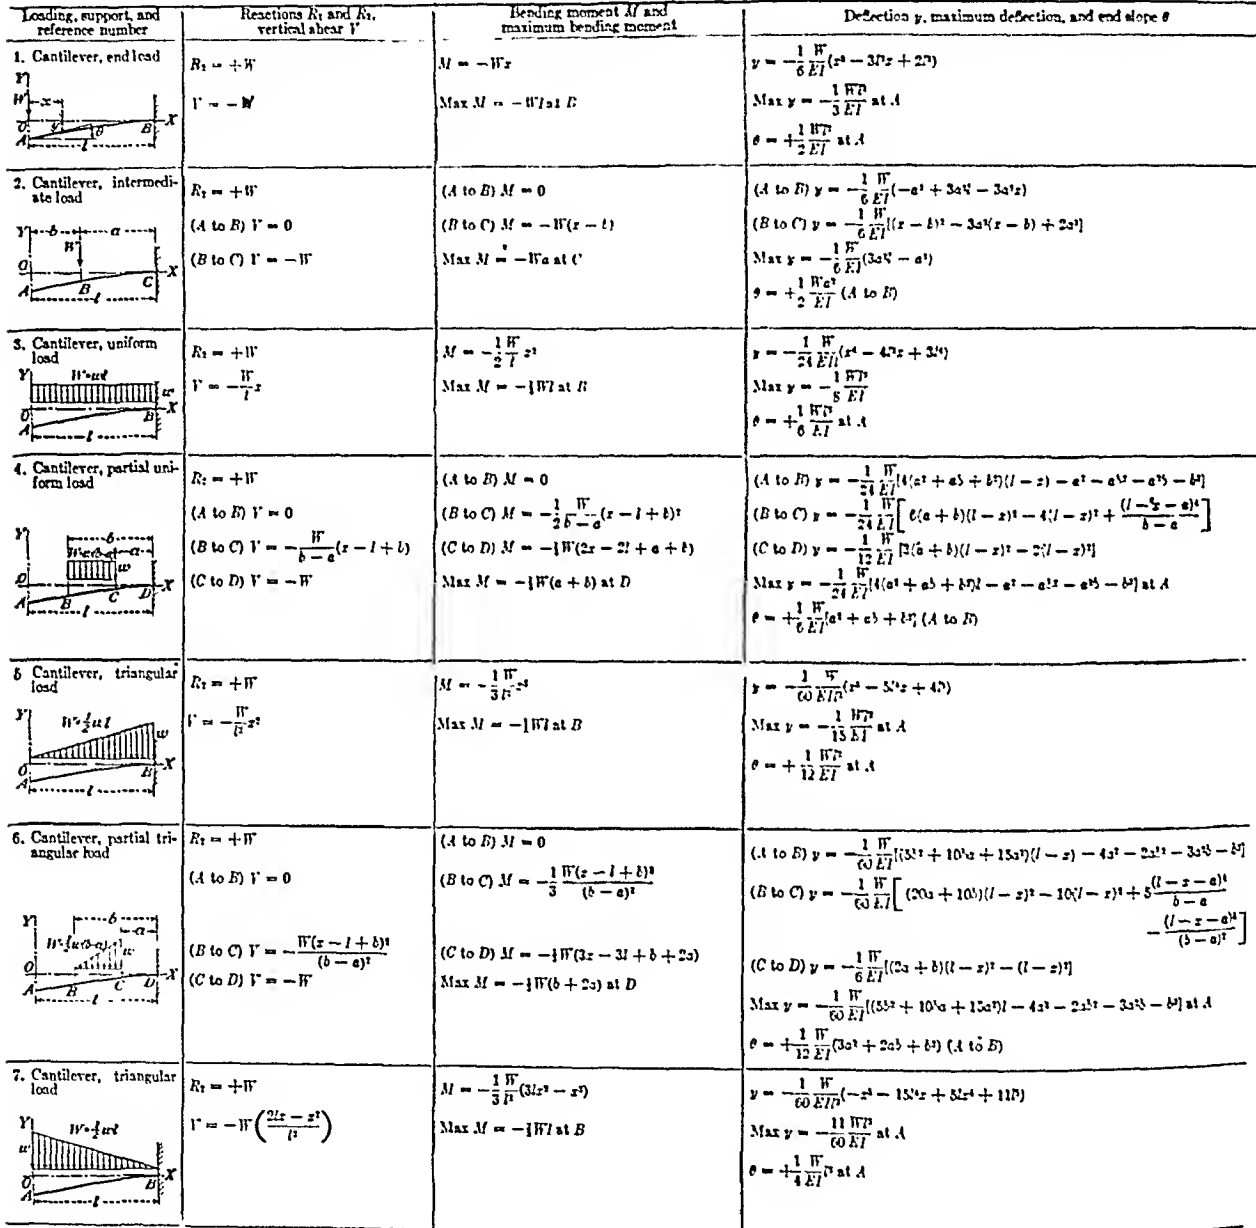 Loading, support, and reference number
Reactions R₁ and R₂, vertical shear V
Bending moment M and maximum bending moment
Deflection y, maximum deflection, and end slope θ
1. Cantilever, end load
R₂ = +W
V = −W
M = −Wx
Max M = −Wl at B
y = −1/6 W/EI (x³ − 3l²x + 2l³)
Max y = −1/3 Wl³/EI at A
θ = +1/2 Wl²/EI at A
2. Cantilever, intermediate load
R₂ = +W
(A to B) V = 0
(B to C) V = −W
(A to B) M = 0
(B to C) M = −W(x − b)
Max M = −Wa at C
(A to B) y = −1/6 W/EI (−a³ + 3a²l − 3a²x)
(B to C) y = −1/6 W/EI [(x − b)³ − 3a²(x − b) + 2a³]
Max y = −1/6 W/EI (3a²l − a³)
θ = +1/2 Wa²/EI (A to B)
3. Cantilever, uniform load
W=wl
R₂ = +W
V = −W/l x
M = −1/2 W/l x²
Max M = −½Wl at B
y = −1/24 W/EIl (x⁴ − 4l³x + 3l⁴)
Max y = −1/8 Wl³/EI
θ = +1/6 Wl²/EI at A
4. Cantilever, partial uniform load
W=w(b-a)
R₂ = +W
(A to B) V = 0
(B to C) V = −W/(b − a) (x − l + b)
(C to D) V = −W
(A to B) M = 0
(B to C) M = −1/2 W/(b − a) (x − l + b)²
(C to D) M = −½W(2x − 2l + a + b)
Max M = −½W(a + b) at D
(A to B) y = −1/24 W/EI [4(a² + ab + b²)(l − x) − a³ − ab² − a²b − b³]
(B to C) y = −1/24 W/EI [6(a + b)(l − x)² − 4(l − x)³ + (l − x − a)⁴/(b − a)]
(C to D) y = −1/12 W/EI [3(a + b)(l − x)² − 2(l − x)³]
Max y = −1/24 W/EI [4(a² + ab + b²)l − a³ − ab² − a²b − b³] at A
θ = +1/6 W/EI [a² + ab + b²] (A to B)
5 Cantilever, triangular load
W=½wl
R₂ = +W
V = −W/l² x²
M = −1/3 W/l² x³
Max M = −⅓Wl at B
y = −1/60 W/EIl² (x⁵ − 5l⁴x + 4l⁵)
Max y = −1/15 Wl³/EI at A
θ = +1/12 Wl²/EI at A
6. Cantilever, partial triangular load
W=½w(b-a)
R₂ = +W
(A to B) V = 0
(B to C) V = −W(x − l + b)²/(b − a)²
(C to D) V = −W
(A to B) M = 0
(B to C) M = −1/3 W(x − l + b)³/(b − a)²
(C to D) M = −⅓W(3x − 3l + b + 2a)
Max M = −⅓W(b + 2a) at D
(A to B) y = −1/60 W/EI [(5b² + 10ba + 15a²)(l − x) − 4a³ − 2ab² − 3a²b − b³]
(B to C) y = −1/60 W/EI [(20a + 10b)(l − x)² − 10(l − x)³ + 5 (l − x − a)⁴/(b − a)
− (l − x − a)⁵/(b − a)²]
(C to D) y = −1/6 W/EI [(2a + b)(l − x)² − (l − x)³]
Max y = −1/60 W/EI [(5b² + 10ba + 15a²)l − 4a³ − 2ab² − 3a²b − b³] at A
θ = +1/12 W/EI (3a² + 2ab + b²) (A to B)
7. Cantilever, triangular load
W=½wl
R₂ = +W
V = −W((2lx − x²)/l²)
M = −1/3 W/l² (3lx² − x³)
Max M = −⅔Wl at B
y = −1/60 W/EIl² (−x⁵ − 15l⁴x + 5lx⁴ + 11l⁵)
Max y = −11/60 Wl³/EI at A
θ = +1/4 W/EI l² at A